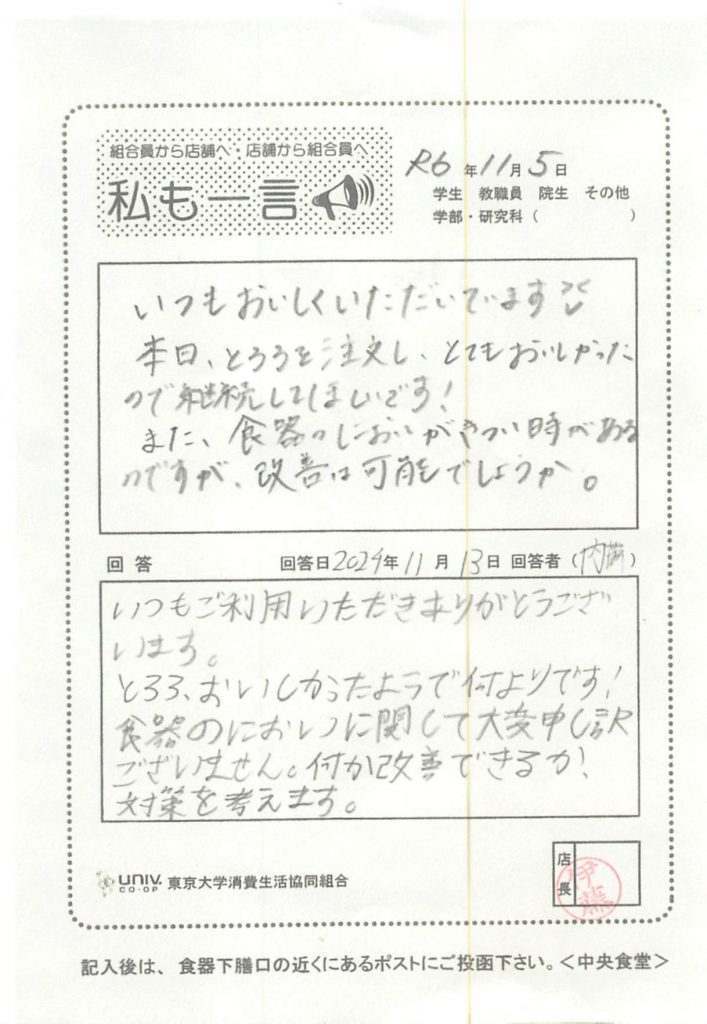 組合員から店舗へ・店舗から組合員へ
私も一言
R6年11月5日
学生 教職員 院生 その他
学部・研究科（ ）
いつもおいしくいただいています
本日、とろろを注文し、とてもおいしかった
ので継続してほしいです！
また、食器のにおいがきつい時がある
のですが、改善は可能でしょうか。
回答 回答日2024年11月13日 回答者（内）
いつもご利用いただきありがとうござ
います。
とろろ、おいしかったようで何よりです！
食器のにおいに関して大変申し訳
ございません。何か改善できるか、
対策を考えます。
店長
伊藤
UNIV. CO-OP 東京大学消費生活協同組合
記入後は、食器下膳口の近くにあるポストにご投函下さい。＜中央食堂＞